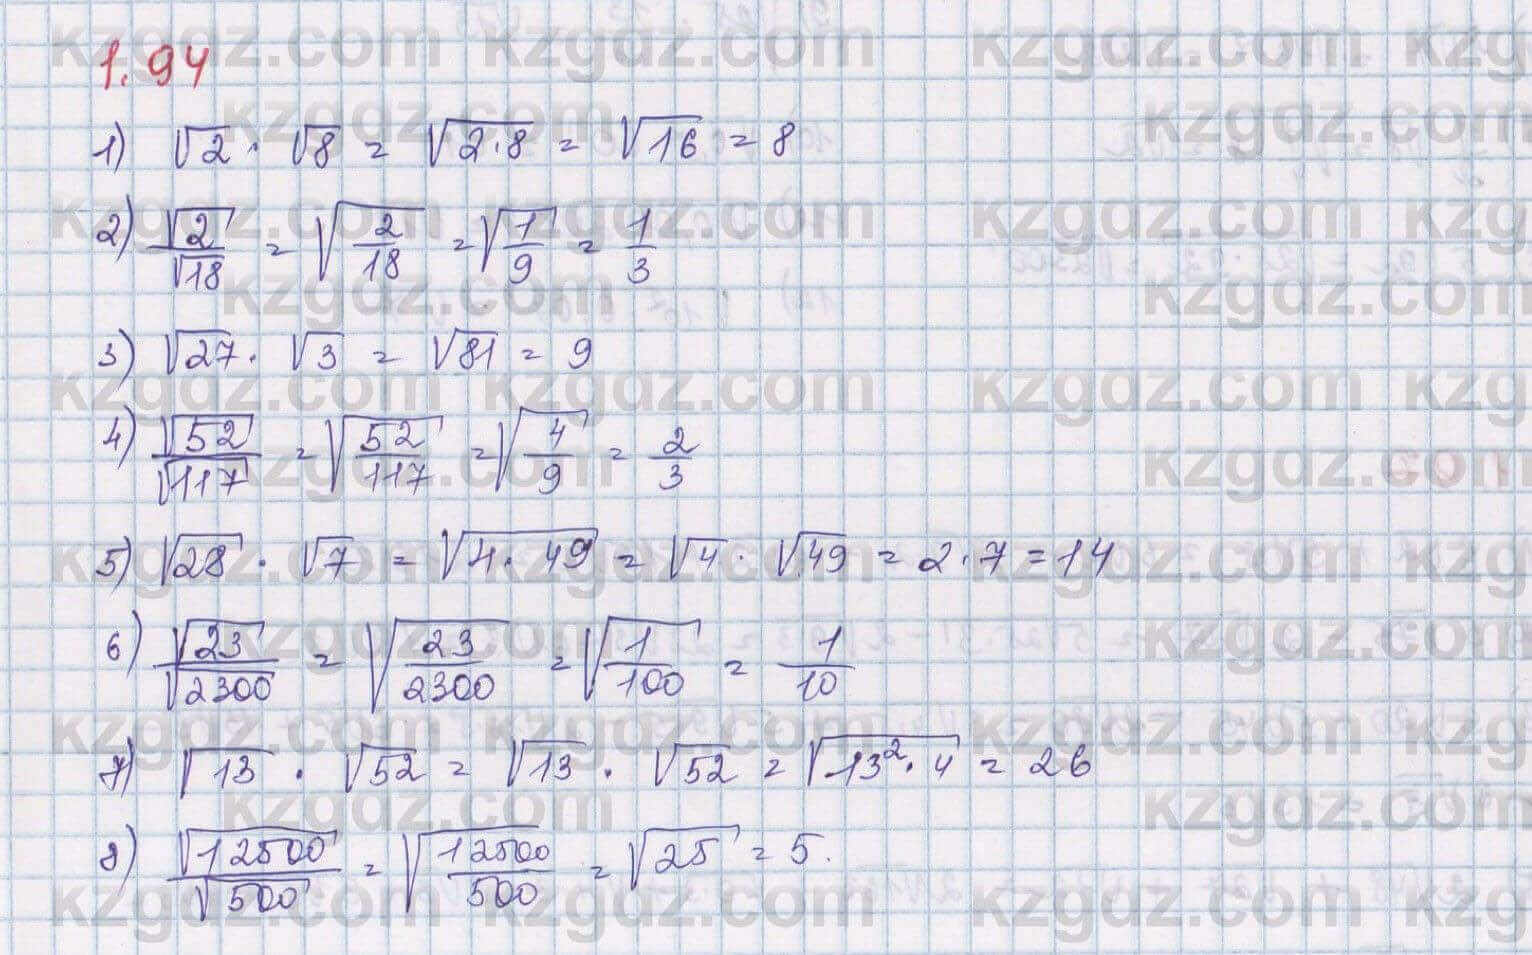 1.94
1) √2 · √8 = √(2·8) = √16 = 8
2) √2/√18 = √(2/18) = √(1/9) = 1/3
3) √27 · √3 = √81 = 9
4) √52/√117 = √(52/117) = √(4/9) = 2/3
5) √28 · √7 = √(4·49) = √4 · √49 = 2·7 = 14
6) √23/√2300 = √(23/2300) = √(1/100) = 1/10
7) √13 · √52 = √13 · √52 = √(13²·4) = 26
8) √12500/√500 = √(12500/500) = √25 = 5.
kzgdz.com